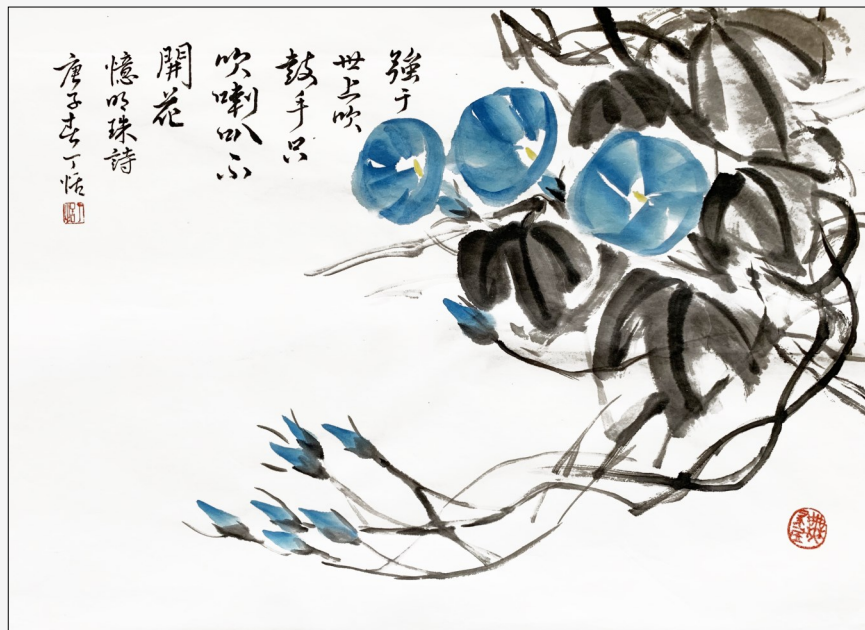 強于
世上吹
鼓手只
吹喇叭不
開花
憶明珠詩
庚子春丁恬